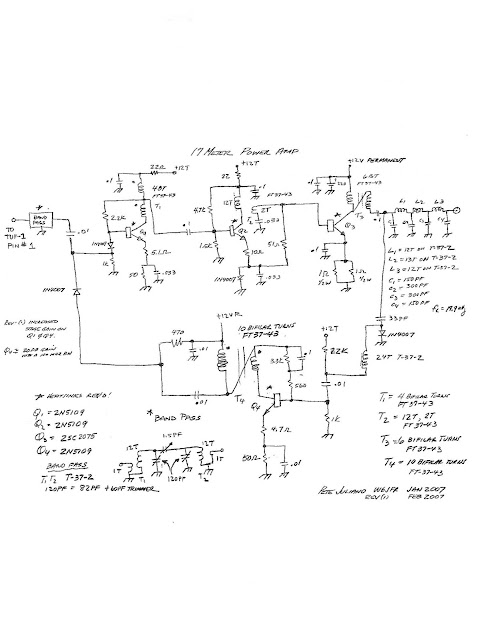 17 METER POWER AMP
22Ω
+12T
.1
4BT
FT37-43
T1
2.2K
1N4007
1K
Q1
5.1Ω
50
.033
.1
+12T
22
.1
47Ω
12T
2T
FT37-43
T2
Q2
10Ω
1N4007
.033
51Ω
+12V PERMANENT
.1
6BT
FT37-43
T3
Q3
.1
1Ω
1/2W
1Ω
1/2W
.1
L1
L2
L3
C1
C2
C3
C4
BAND
PASS
TO
TUF-1
PIN #1
.01
L1 = 12T ON T-37-2
L2 = 13T ON T-37-2
L3 = 12T ON T-37-2
C1 = 150PF
C2 = 300PF
C3 = 300PF
C4 = 150PF
33PF
1N4007
24T T-37-2
1N4007
REV(1) INCREASED
STAGE GAIN ON
Q1 & Q4.
+12VR
470
.01
10 BIFILAR TURNS
FT-37-43
T4
.1
560
Q4
4.7Ω
50Ω
.01
+12T
22K
.01
1K
* HEATSINKS REQ'D!
Q1 = 2N5109
Q2 = 2N5109
Q3 = 2SC2075
Q4 = 2N5109
BAND PASS
T1 T2 T-37-2
120PF = 82PF + 60PF TRIMMER
* BAND PASS
12T
1T
T1
120PF
12T
1T
T2
T1 = 4 BIFILAR TURNS
FT 37-43
T2 = 12T, 2T
FT 37-43
T3 = 6 BIFILAR TURNS
FT 37-43
T4 = 10 BIFILAR TURNS
FT-37-43
PETE JULIANO W6JFR JAN 2007
REV(1) FEB 2007